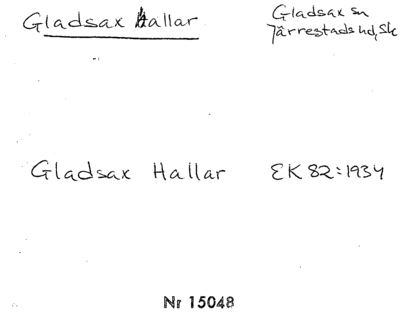 Gladsax Hallar
Gladsax sn
Järrestads hd, Sk
Gladsax Hallar
EK 82:1934
Nr 15048